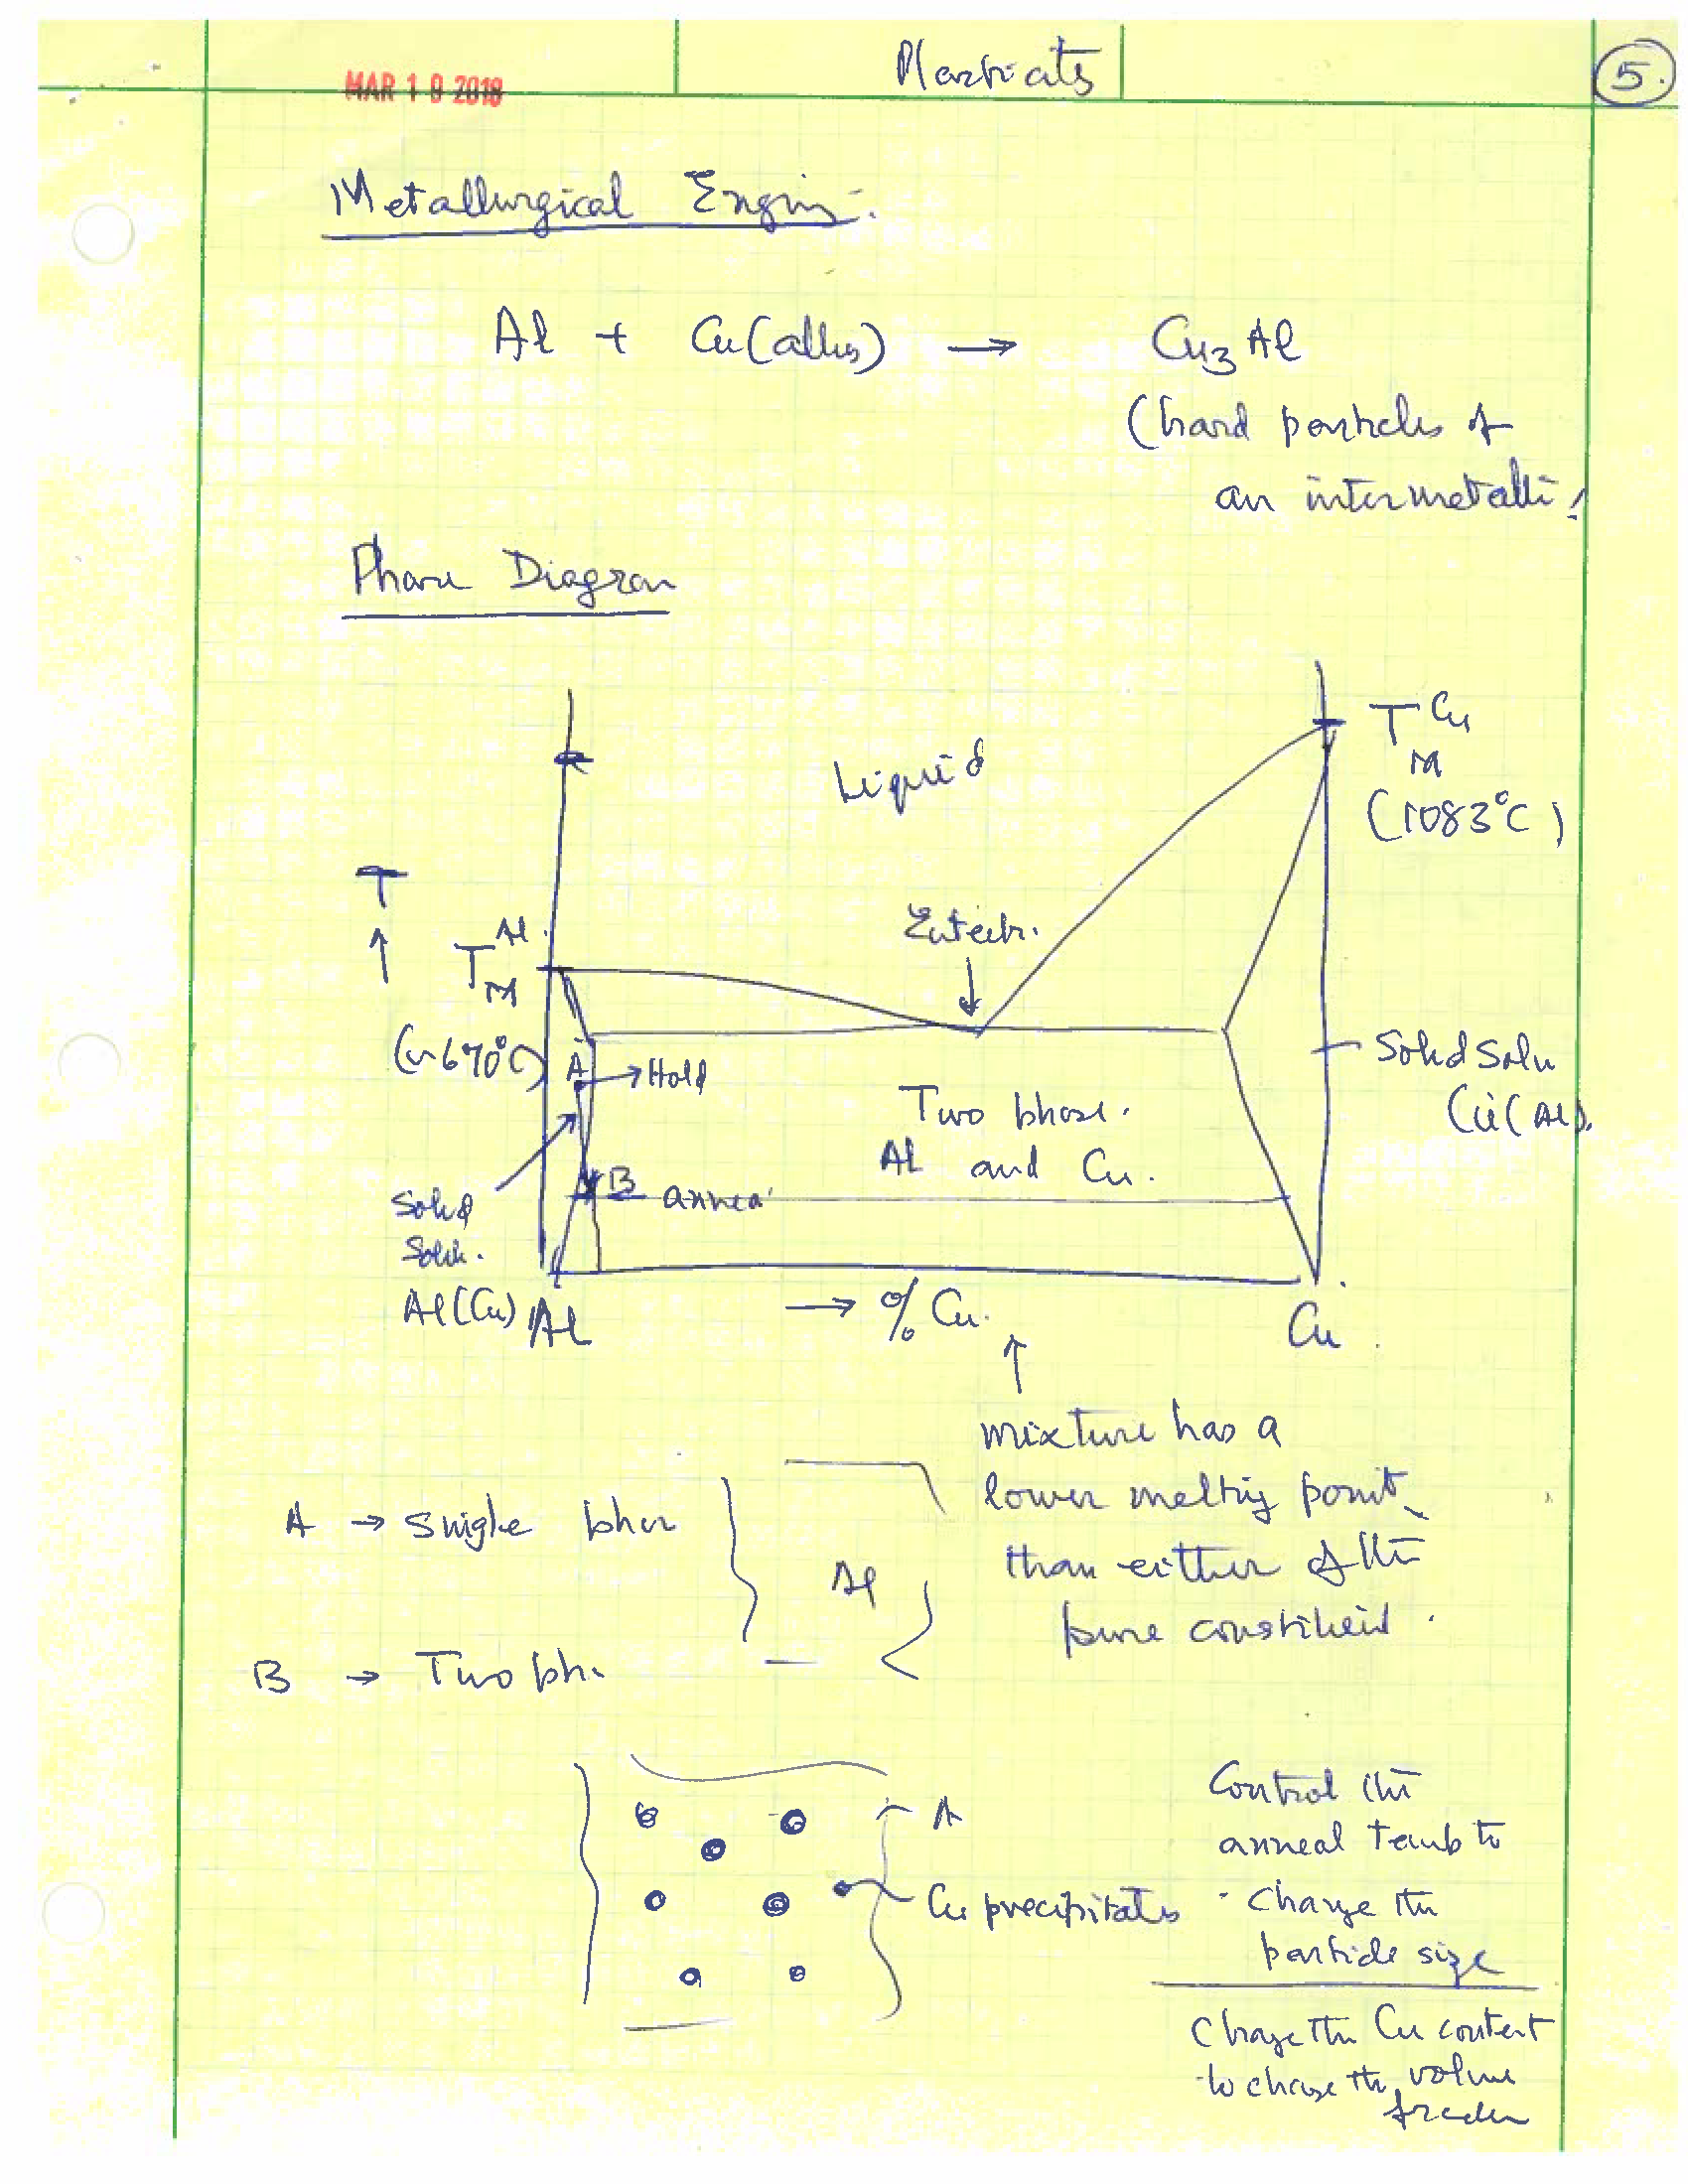 MAR 19 2018
5.
Metallurgical Engin.
Al + Cu(alloy) → Cu3Al
(hard particles of
an intermetalli
Phase Diagram
T Cu
M
(1083°C)
Liquid
T
↑
T Al
M
(~670°C)
Eutectic.
↓
A → Hold
Two phase.
Al and Cu.
Solid Soln
Cu(Al).
B
← annea
Solid
Soln.
Al(Cu)
Al
→ % Cu.
Cu
↑
mixture has a
lower melting point
than either of the
pure constituent.
A → Single phase
Al
B → Two ph.
A
Cu precipitates
Control the
anneal temp to
· change the
particle size
Change the Cu content
to change the volume
fraction